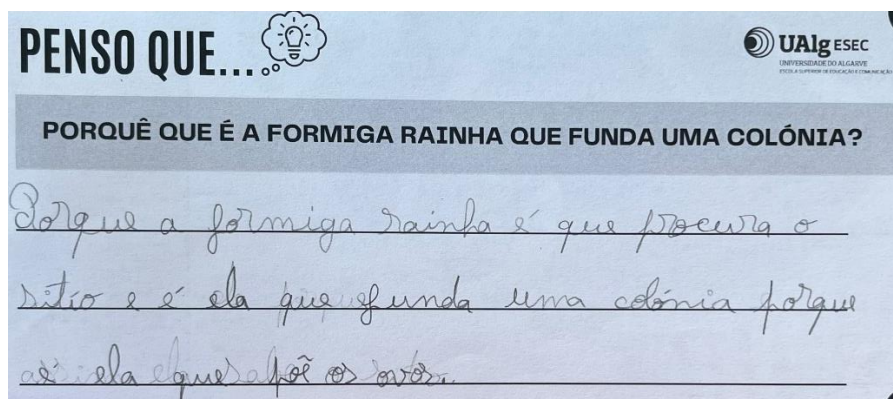 PENSO QUE...
UAlg ESEC
UNIVERSIDADE DO ALGARVE
ESCOLA SUPERIOR DE EDUCAÇÃO E COMUNICAÇÃO
PORQUÊ QUE É A FORMIGA RAINHA QUE FUNDA UMA COLÓNIA?
Porque a formiga rainha é que procura o
sitio e é ela que funda uma colónia porque
é ela que põe os ovos.